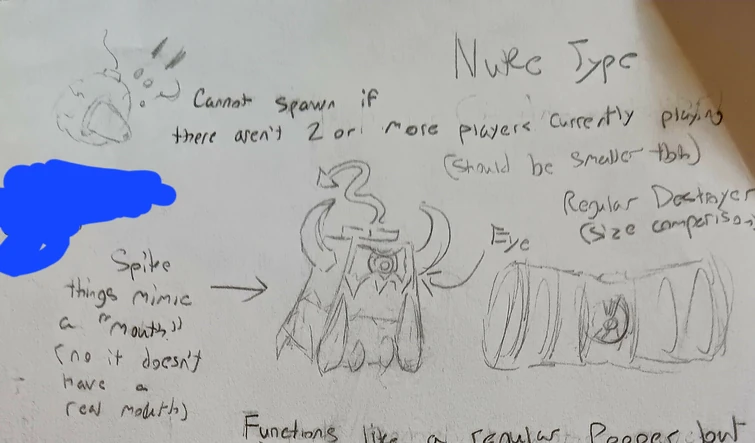 Nuke Type
Cannot spawn if
there aren't 2 or more players currently playing
(should be smaller tbh)
Regular Destroyer
(size comparison)
Eye
Spike
things mimic
a "mouth"
(no it doesn't
have a
real mouth)
Functions like a regular Popper but